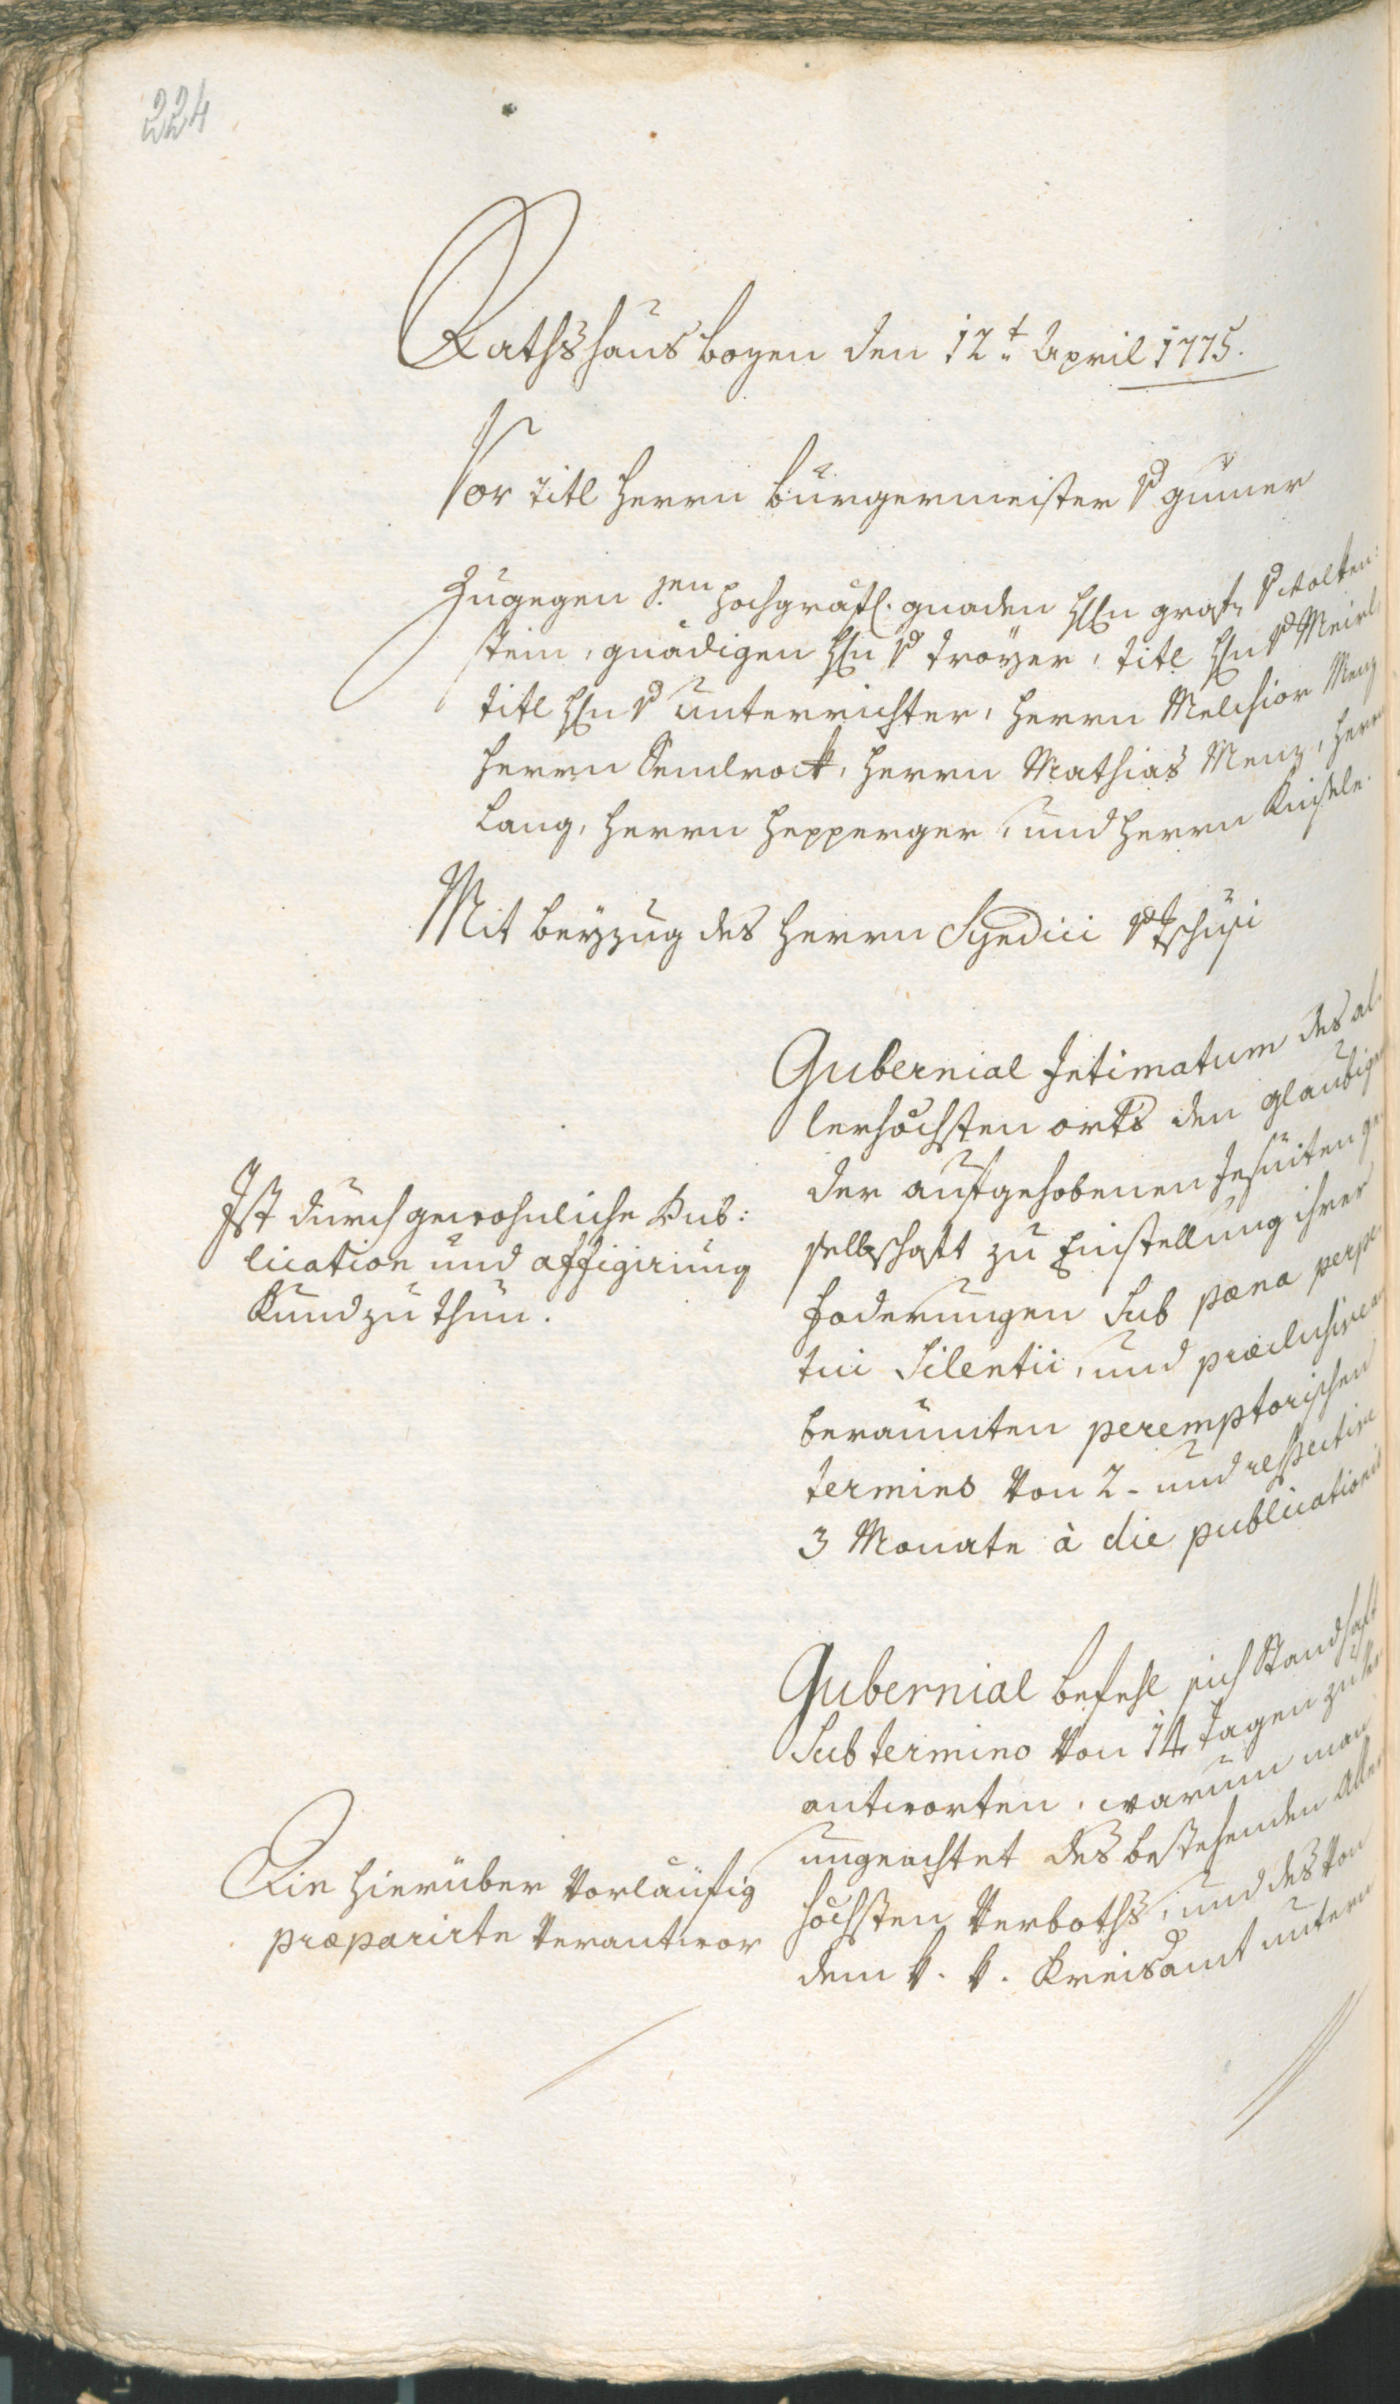 224
Rathshaus Bozen den 12t April 1775.
Vor titl Herrn Burgermeister v gumer
Zugegen Sr hochgräfl. gnaden Hhn grafn v Wolken:
stein, gnädigen Hhn v troyer, titl Hhn v Meirl,
titl Hhn v unterrichter, Herrn Melchior Menz
Herrn Hendrock, Herrn Mathias Menz, Herrn
Lang, Herrn Hepperger, und Herrn Kniele.
Mit beyzug des Herrn Syndici v Tschusi
Gubernial Intimatum des al
lerhöchsten orts den glaubigern
der aufgehobenen Jesuiten ge
sellschaft zu Einstellung ihrer
foderungen sub pæna perpe
tui silentii, und præclusive an
beraumten peremptorischen
termins von 2- und respective
3 Monate à die publicationis
Ist durch gewohnliche Pub:
lication und affigirung
Kund zu thun.
Gubernial befehl sich standhaft
sub termino von 14 tagen zu ver
antworten, warum man
ungeachtet des bestehenden Aller
höchsten Verboths, und des von
dem k. k. Kreisamt untern
Die hierüber vorläufig
præparirte verantwor